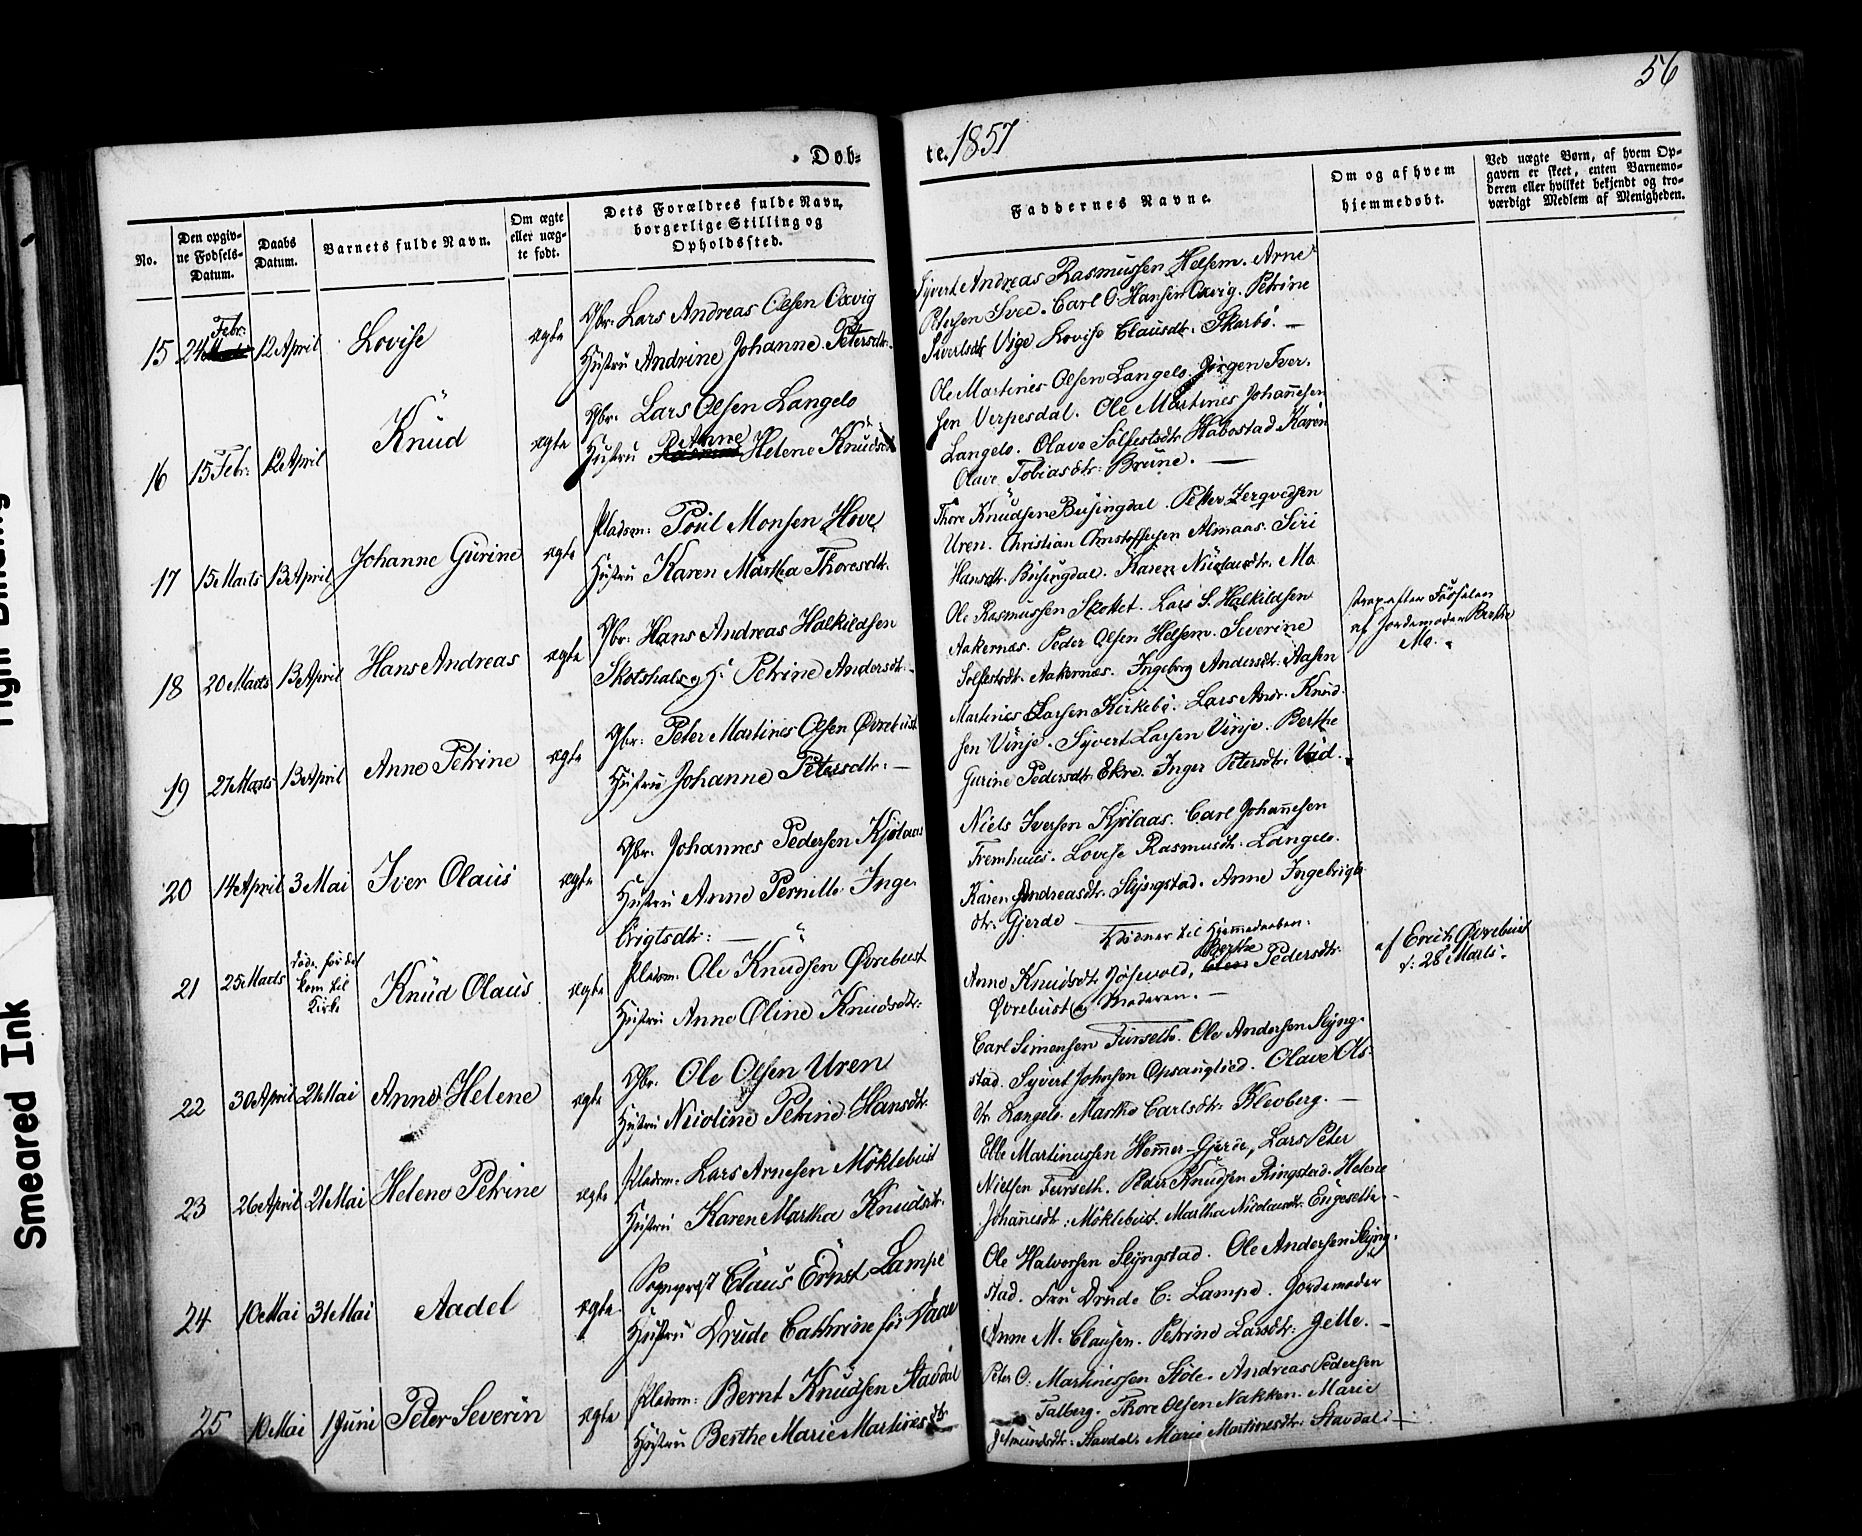 56
Döb-
te. 1857
No.
Den opgiv-
ne Fødsels-
Datum.
Daabs
Datum.
Barnets fulde Navn.
Om ægte
eller uæg-
te født.
Dets Forældres fulde Navn,
borgerlige Stilling og
Opholdssted.
Faddernes Navne.
Om og af hvem
hjemmedøbt.
Ved uægte Børn, af hvem Op-
gaven er skeet, enten Barnemo-
deren eller hvilket bekjendt og tro-
værdigt Medlem af Menigheden.
15 24 Febr. 12 April Lovise ægte
Gbr: Lars Andreas Olsen Oxvig
Hustru Andrine Johanne Petersdtr.
Syvert Andreas Rasmussen Helsem. Arne
Petersen Sve. Carl O. Hansen Oxvig. Petrine
Sivertsdtr Vige. Lovise Clausdtr. Skarbö. —
16 15 Febr: 12 April Knud ægte
Gbr: Lars Olsen Langelo
Hustru Anne Helene Knudsdtr
Ole Martines Olsen Langelo. Jörgen Iver-
sen Verpesdal. Ole Martines Johannesen
Langelo. Olave Solfestsdtr Habostad Karen
Olave Tobiasdtr: Brune. —
17 15 Marts 13 April Johanne Gurine ægte
Pladsm: Poul Monsen Hove
Hustru Karen Martha Thoresdtr.
Thore Knudsen Busingdal. Petter
Uren. Christian Christoffersen Almaas. Siri
Hansdtr. Busingdal. Karen Nicolausdtr. Mo
18 20 Marts 13 April Hans Andreas ægte
Gbr: Hans Andreas Halkildsen
Skotshals og H. Petrine Andersdtr.
Ole Rasmussen Skottet. Lars S. Halkildsen
Aakernæs. Peder Olsen Helsem. Severine
Solfestsdtr. Aakernæs. Ingeborg Andersdtr. Aasen
strax efter Födselen
af Jordemoder Berthe
Mo.
19 27 Marts 13 April Anne Petrine ægte
Gbr: Peter Martines Olsen Øvrebust
Hustru Johanne Petersdtr: —
Martines Larsen Kirkebö. Lars Andr. Knud-
sen Vinje. Syvert Larsen Vinje. Berthe
Gurine Pedersdtr. Ekre. Inger Petersdtr.
20 14 April 3 Mai Iver Olaus ægte
Gbr. Johannes Pedersen Kjølaas
Hustru Anne Pernille Inge-
brigtsdtr: —
Niels Iversen Kjølaas. Carl Johannesen
Fremhuus. Lovise Rasmusdtr. Langelo.
Karen Andreasdtr. Slyngstad. Anne Ingebrigts-
dtr. Gjerde
21 25 Marts döde för det
kom til
Kirke Knud Olaus ægte
Pladsm: Ole Knudsen Øvrebust
Hustru Anne Oline Knudsdtr:
Vidner til Hjemmedaaben:
Anne Knudsdtr. Berthe Pedersdtr.
Øvrebust og Moderen. —
af Erich Øvrebust
d: 28 Marts.
22 30 April 21 Mai Anne Helene ægte
Gbr. Ole Olsen Uren
Hustru Nicoline Petrine Hansdtr.
Carl Simensen Furseth. Ole Andersen Slyng-
stad. Syvert Johnsen Opsanglied. Olave Ols-
dtr. Langelo. Marthe Carlsdtr. Klevberg. —
23 26 April 21 Mai Helene Petrine ægte
Pladsm: Lars Arnesen Möklebust
Hustru Karen Martha Knudsdtr.
Elle Martinussen Hemmer-Gjerde, Lars Peter
Nielsen Furseth. Peder Knudsen Ringstad. Helene
Johannesdtr: Möklebust. Martha Nicolausdtr. Engeseth. -
24 10 Mai 31 Mai Aadel ægte
Sognepræst Claus Ernst Lampe
Hustru Drude Cathrine för Daae
Ole Halvorsen Slyngstad. Ole Andersen Slyng-
stad. Fru Drude C: Lampe. Jordemoder
Anne M. Clausen. Petrine Larsdtr: Gjelle. —
25 10 Mai 1 Juni Peter Severin ægte
Pladsm: Bernt Knudsen Stavdal
Hustru Berthe Marie Martinesdtr.
Peter O: Martinessen Støle. Andreas Pedersen
Talberg. Thore Olsen Nakken. Marie
Stavdal. Marie Martinesdtr: Stavdal. —
Tight Binding
Smeared Ink